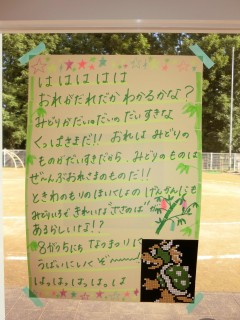 はははははは
おれがだれだか わかるかな？
みどりがだいのだいのだいすきな
くっぱさまだ!! おれは みどりの
ものがだいすきだから、みどりのものは
ぜ〜んぶおれさまのものだ!!
ときわのもりの
みどりいろで きれいな"ささのは"が
あるらしいなぁ!?
8がつ5にち なつまつりに
うばいにいくぞ〜〜!
はっはっはっはっは